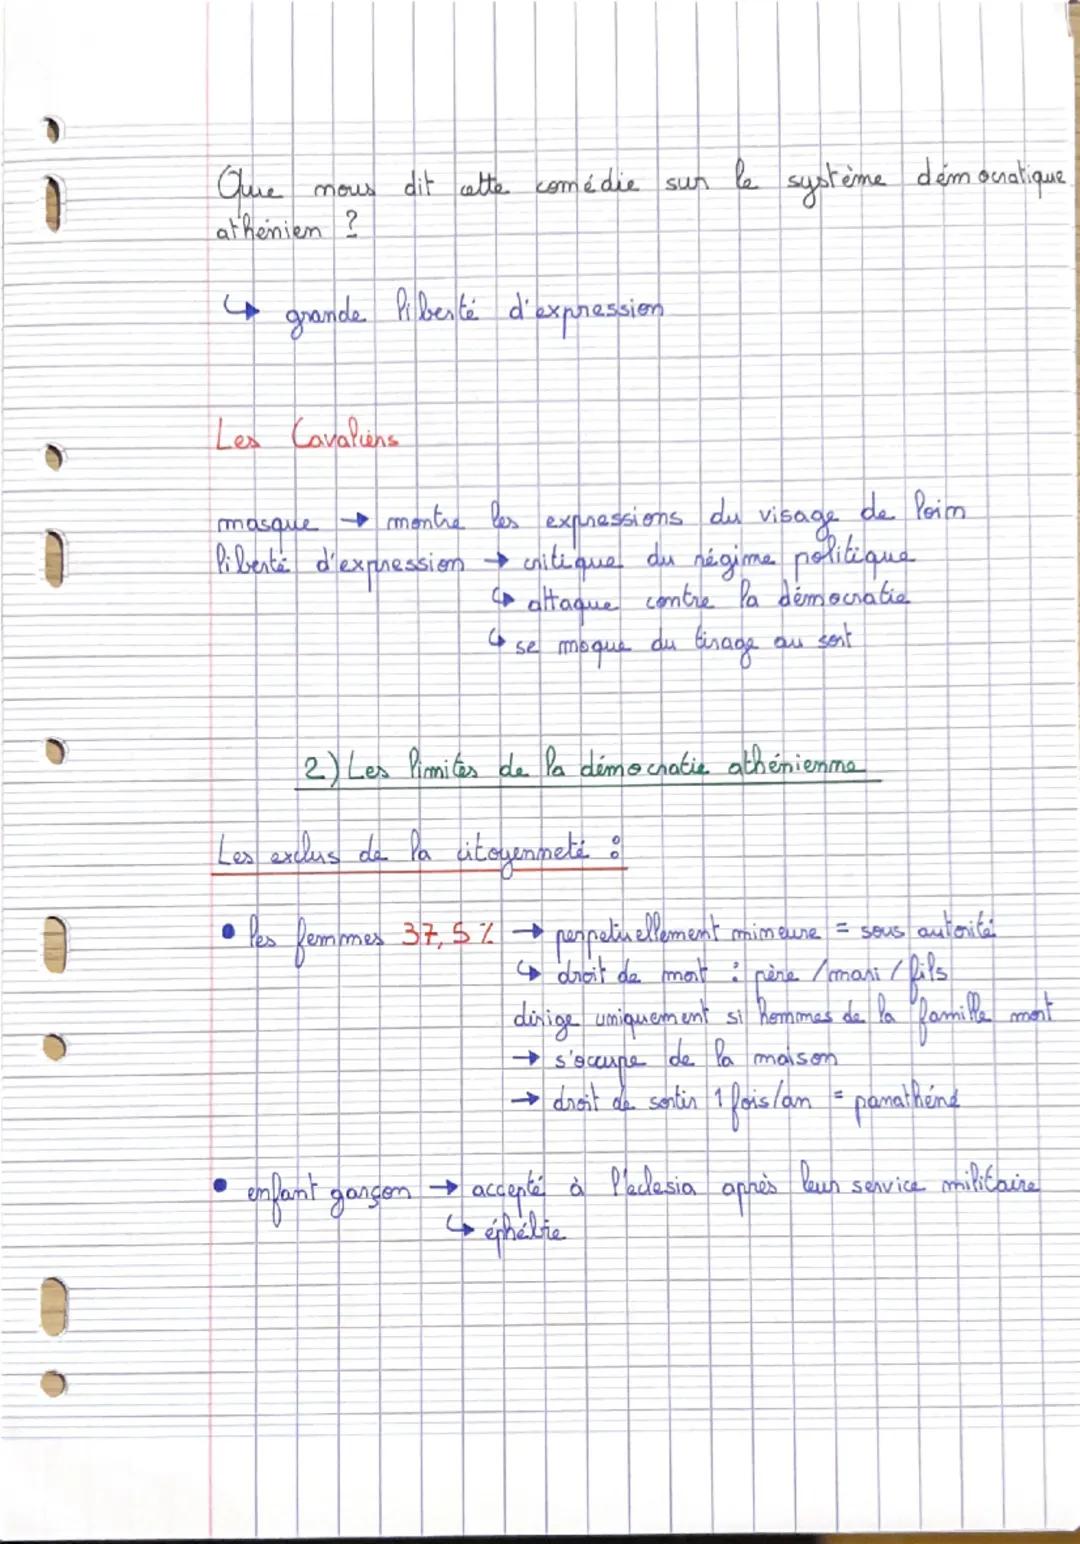 Que nous dit cette comédie sur le système démocratique
athénien ?
↳ grande liberté d'expression
Les Cavaliers
masque → montre les expressions du visage de loin
liberté d'expression → critique du régime politique
↳ attaque contre la démocratie
↳ se moque du tirage au sort
2) Les limites de la démocratie athénienne
Les exclus de la citoyenneté :
• les femmes 37,5 % → perpetuellement mineure = sous autorité
↳ droit de mort : père / mari / fils
dirige uniquement si hommes de la famille mort
→ s'occupe de la maison
→ droit de sortir 1 fois/an = panathéné
• enfant garçon → accepté à l'eclesia après leur service militaire
↳ éphébie